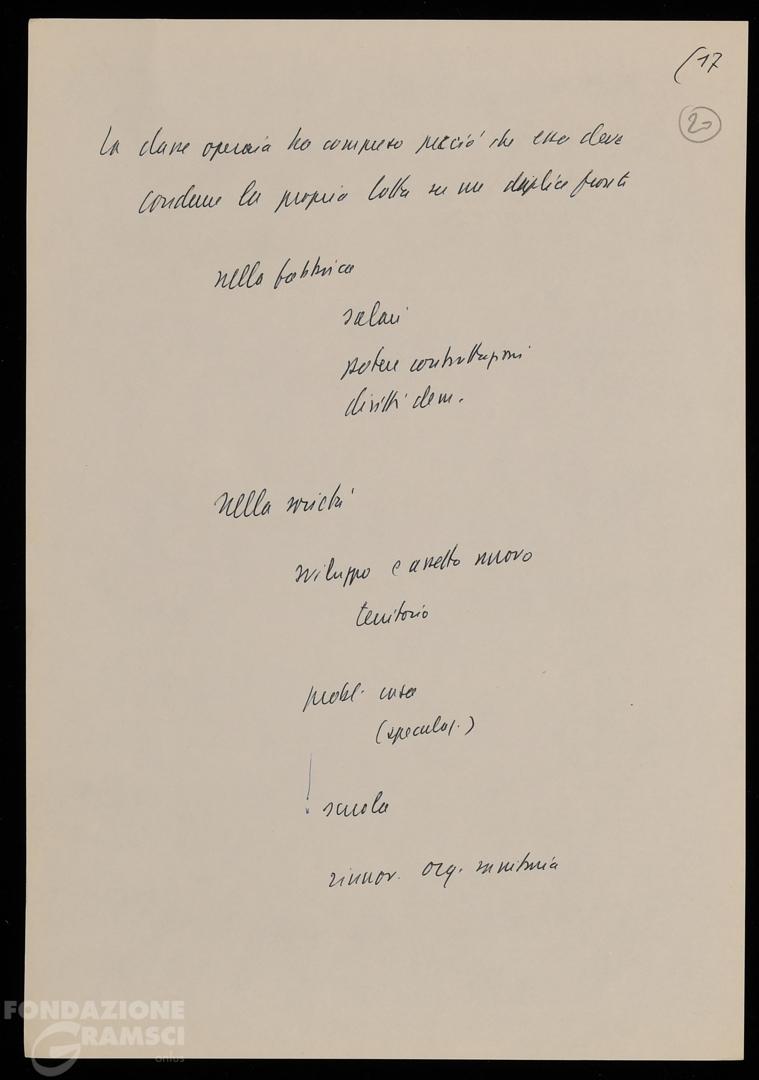 (17
20
La classe operaia ha compreso perciò che essa deve
condurre la propria lotta su un duplice fronte
nella fabbrica
salari
potere contrattazioni
diritti dem.
nella società
sviluppo e assetto nuovo
territorio
probl. casa
(speculaz.)
! scuola
rinnov. org. sanitaria
FONDAZIONE
GRAMSCI
onlus